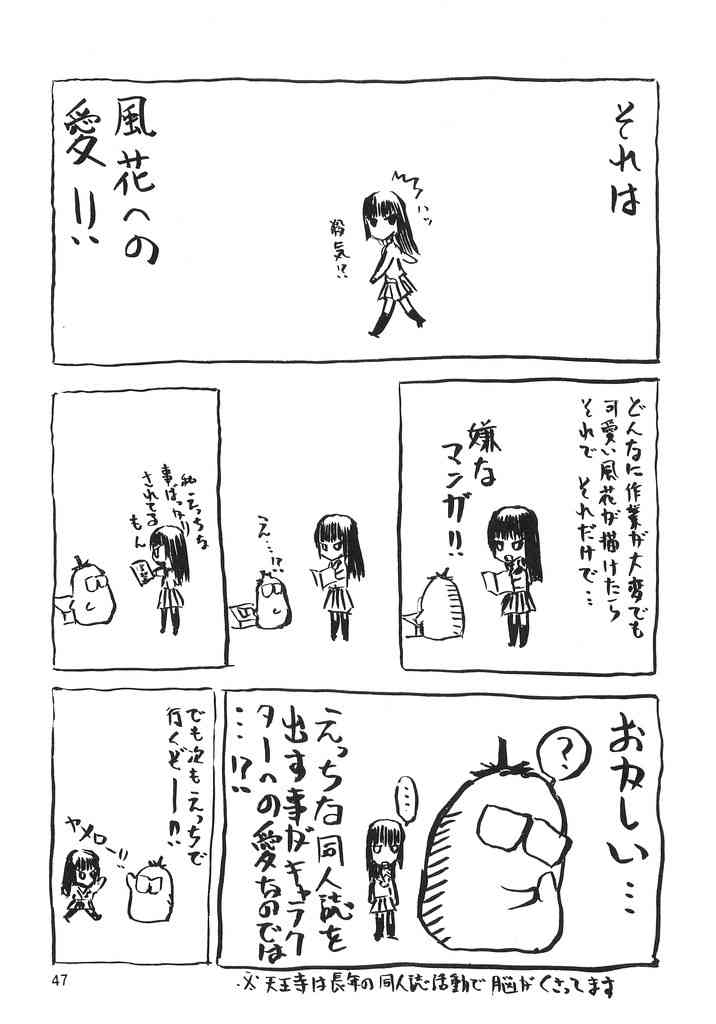 それは
ハッ
殺気!?
風花への
愛!!
どんなに作業が大変でも
可愛い風花が描けたら
それで それだけで…
嫌な
マンガ!!
え…!?
私えっちな
事ばっかり
されてる
もん
おかしい…
?
……
えっちな同人誌を
出す事がキャラク
ターへの愛なのでは
…!?
でも次もえっちで
行くぞー!!
ヤメロー!!
※天王寺は長年の同人誌活動で脳がくさってます
47